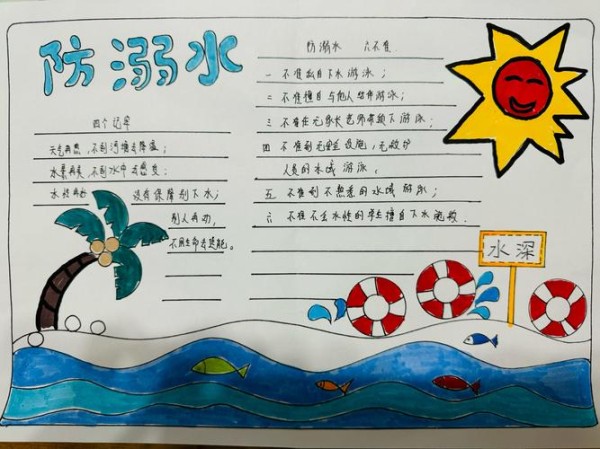 防溺水
四个记牢
天气再热，不到河塘去降温；
水景再美，不到水中去
水性再好，没有保障别下水；
别人再劝，
不用生命去逞能。
防溺水 六不准
一 不准私自下水游泳；
二 不准擅自与他人结伴游泳；
三 不准在无家长老师带领下游泳
四 不准到无安全设施，无救护
人员的水域游泳，
五 不准到不熟悉的水域游泳；
六 不准不会水性的学生擅自下水施救
水深